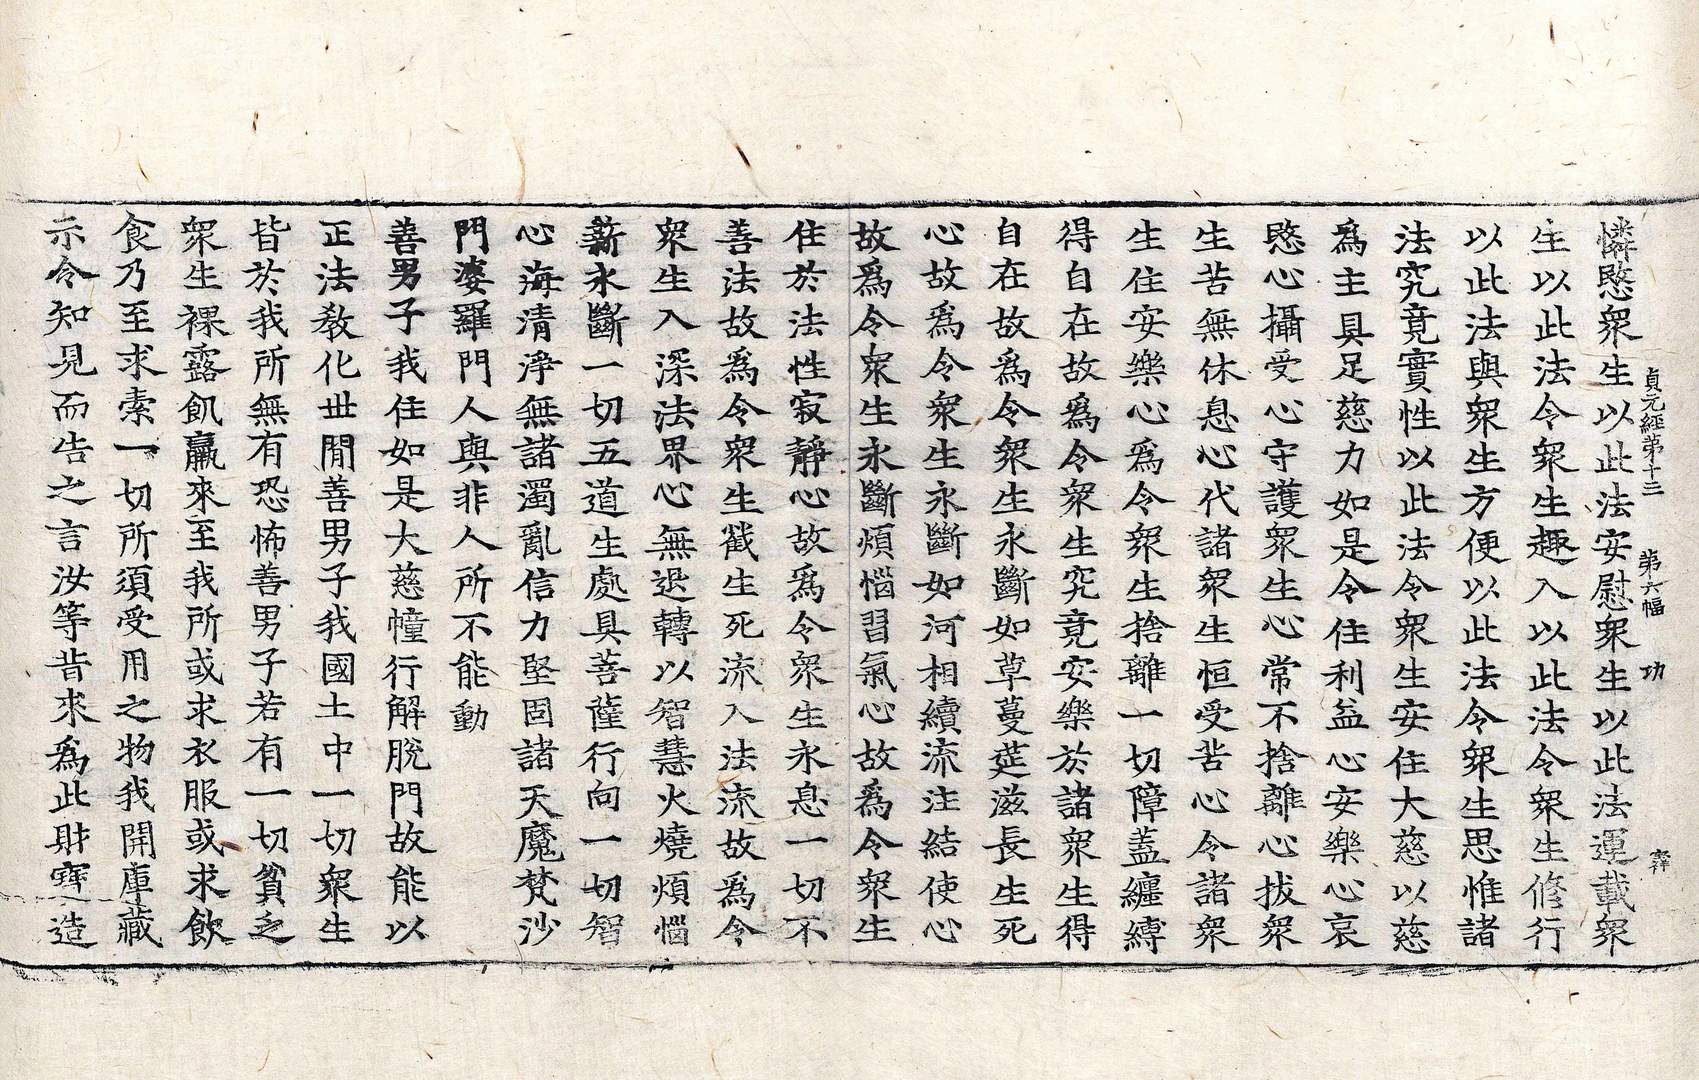 貞元経第十三 第六幅 功
憐愍衆生以此法安慰衆生以此法運載衆
生以此法令衆生趣入以此法令衆生修行
以此法與衆生方便以此法令衆生思惟諸
法究竟實性以此法令衆生安住大慈以慈
爲主具足慈力如是令住利益心安樂心哀
愍心攝受心守護衆生心常不捨離心拔衆
生苦無休息心代諸衆生恒受苦心令諸衆
生住安樂心爲令衆生捨離一切障蓋纏縛
得自在故爲令衆生究竟安樂於諸衆生得
自在故爲令衆生永斷如草蔓莚滋長生死
心故爲令衆生永斷如河相續流注結使心
故爲令衆生永斷煩惱習氣心故爲令衆生
住於法性寂靜心故爲令衆生永息一切不
善法故爲令衆生截生死流入法流故爲令
衆生入深法界心無退轉以智慧火燒煩惱
薪永斷一切五道生處具菩薩行向一切智
心海清淨無諸濁亂信力堅固諸天魔梵沙
門婆羅門人與非人所不能動
善男子我住如是大慈幢行解脫門故能以
正法教化世閒善男子我國土中一切衆生
皆於我所無有恐怖善男子若有一切貧乏
衆生裸露飢羸來至我所或求衣服或求飲
食乃至求索一切所須受用之物我開庫藏
示令知見而告之言汝等昔來爲此財寶造